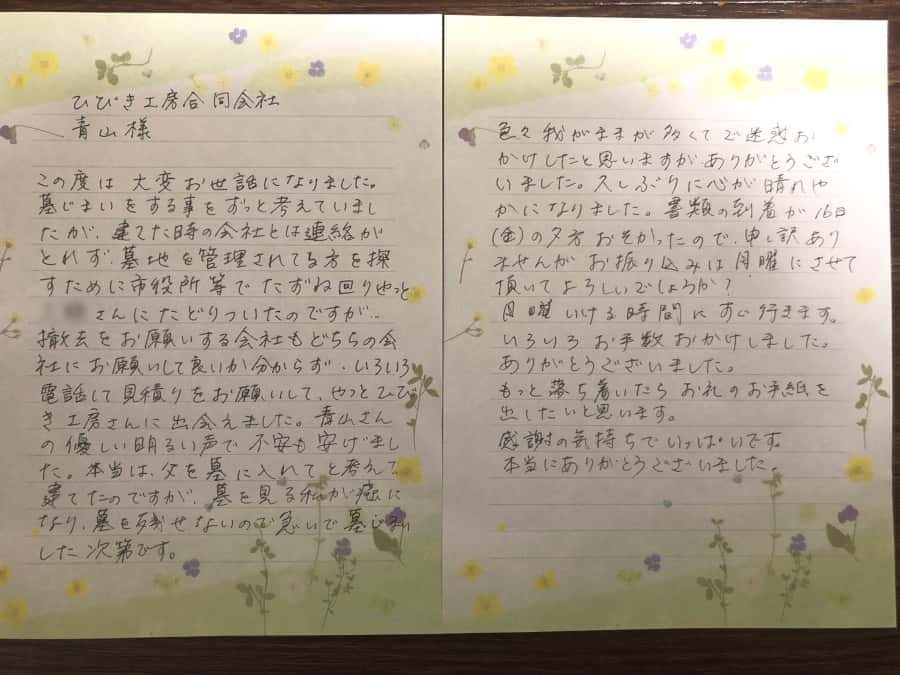 ひびき工房合同会社
青山様
この度は大変お世話になりました。
墓じまいをする事をずっと考えていまし
たが、建てた時の会社とは連絡が
とれず、墓地を管理されてる方を探
すために市役所等でたずね回りやっと
さんにたどりついたのですが、
撤去をお願いする会社もどちらの会
社にお願いして良いか分からず、いろいろ
電話して見積りをお願いして、やっとひび
き工房さんに出会えました。青山さん
の優しい明るい声で不安も安げまし
た。本当は、父を墓に入れてと考えて
建てたのですが、墓を見る私が癌に
なり、墓を残せないので急いで墓じまい
した次第です。
色々我がままが多くてご迷惑お
かけしたと思いますがありがとうござ
いました。久しぶりに心が晴れや
かになりました。書類の到着が16日
(金)の夕方おそかったので、申し訳あり
ませんがお振り込みは月曜にさせて
頂いてよろしいでしょうか？
月曜いける時間にすぐ行きます。
いろいろお手数おかけしました。
ありがとうございました。
もっと落ち着いたらお礼のお手紙を
出したいと思います。
感謝の気持ちでいっぱいです。
本当にありがとうございました。